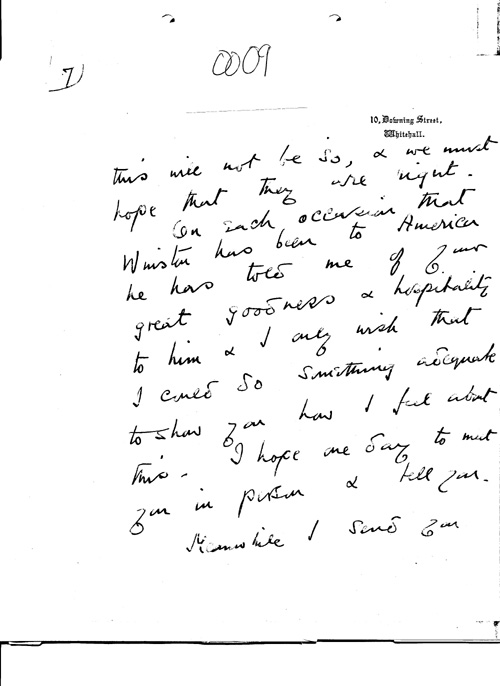 7)
0009
10, Downing Street,
Whitehall.
this will not be so, & we must
hope that they are right.
On each occasion that
Winston has been to America
he has told me of your
great goodness & hospitality
to him & I only wish that
I could do something adequate
to show you how I feel about
this. I hope one day to meet
you in person & tell you.
Meanwhile I send you